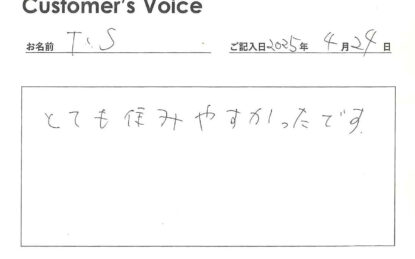 Customer's Voice
お名前 T.S ご記入日2025年 4月24日
とても住みやすかったです